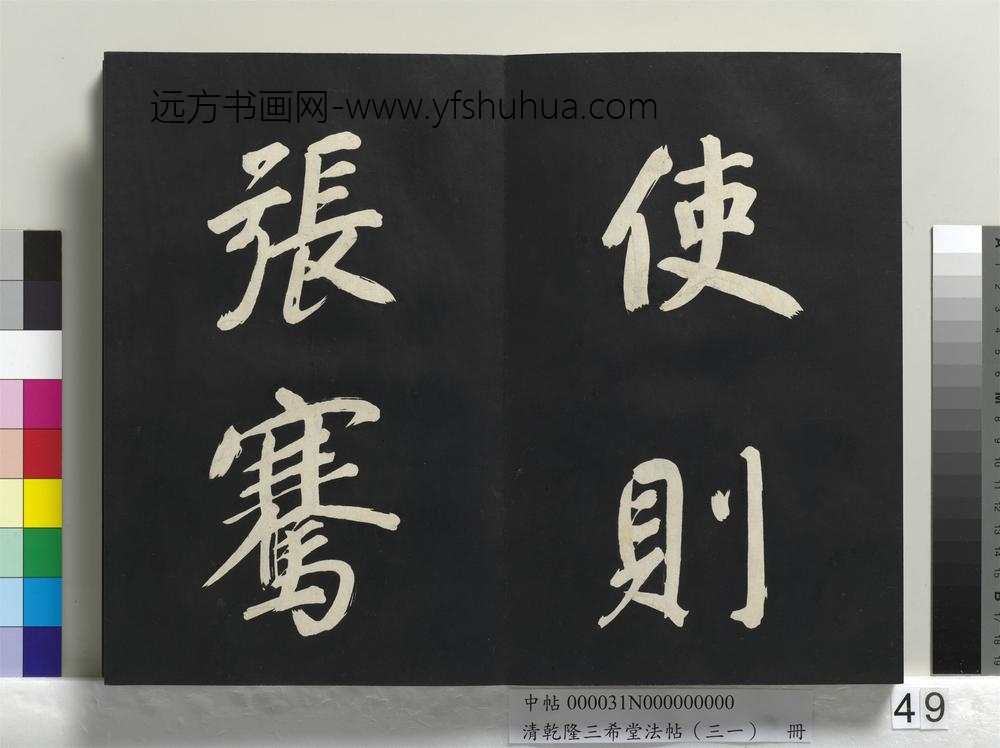 远方书画网-www.yfshuhua.com
使則
張騫
中帖 000031N000000000
清乾隆三希堂法帖（三一） 冊
49